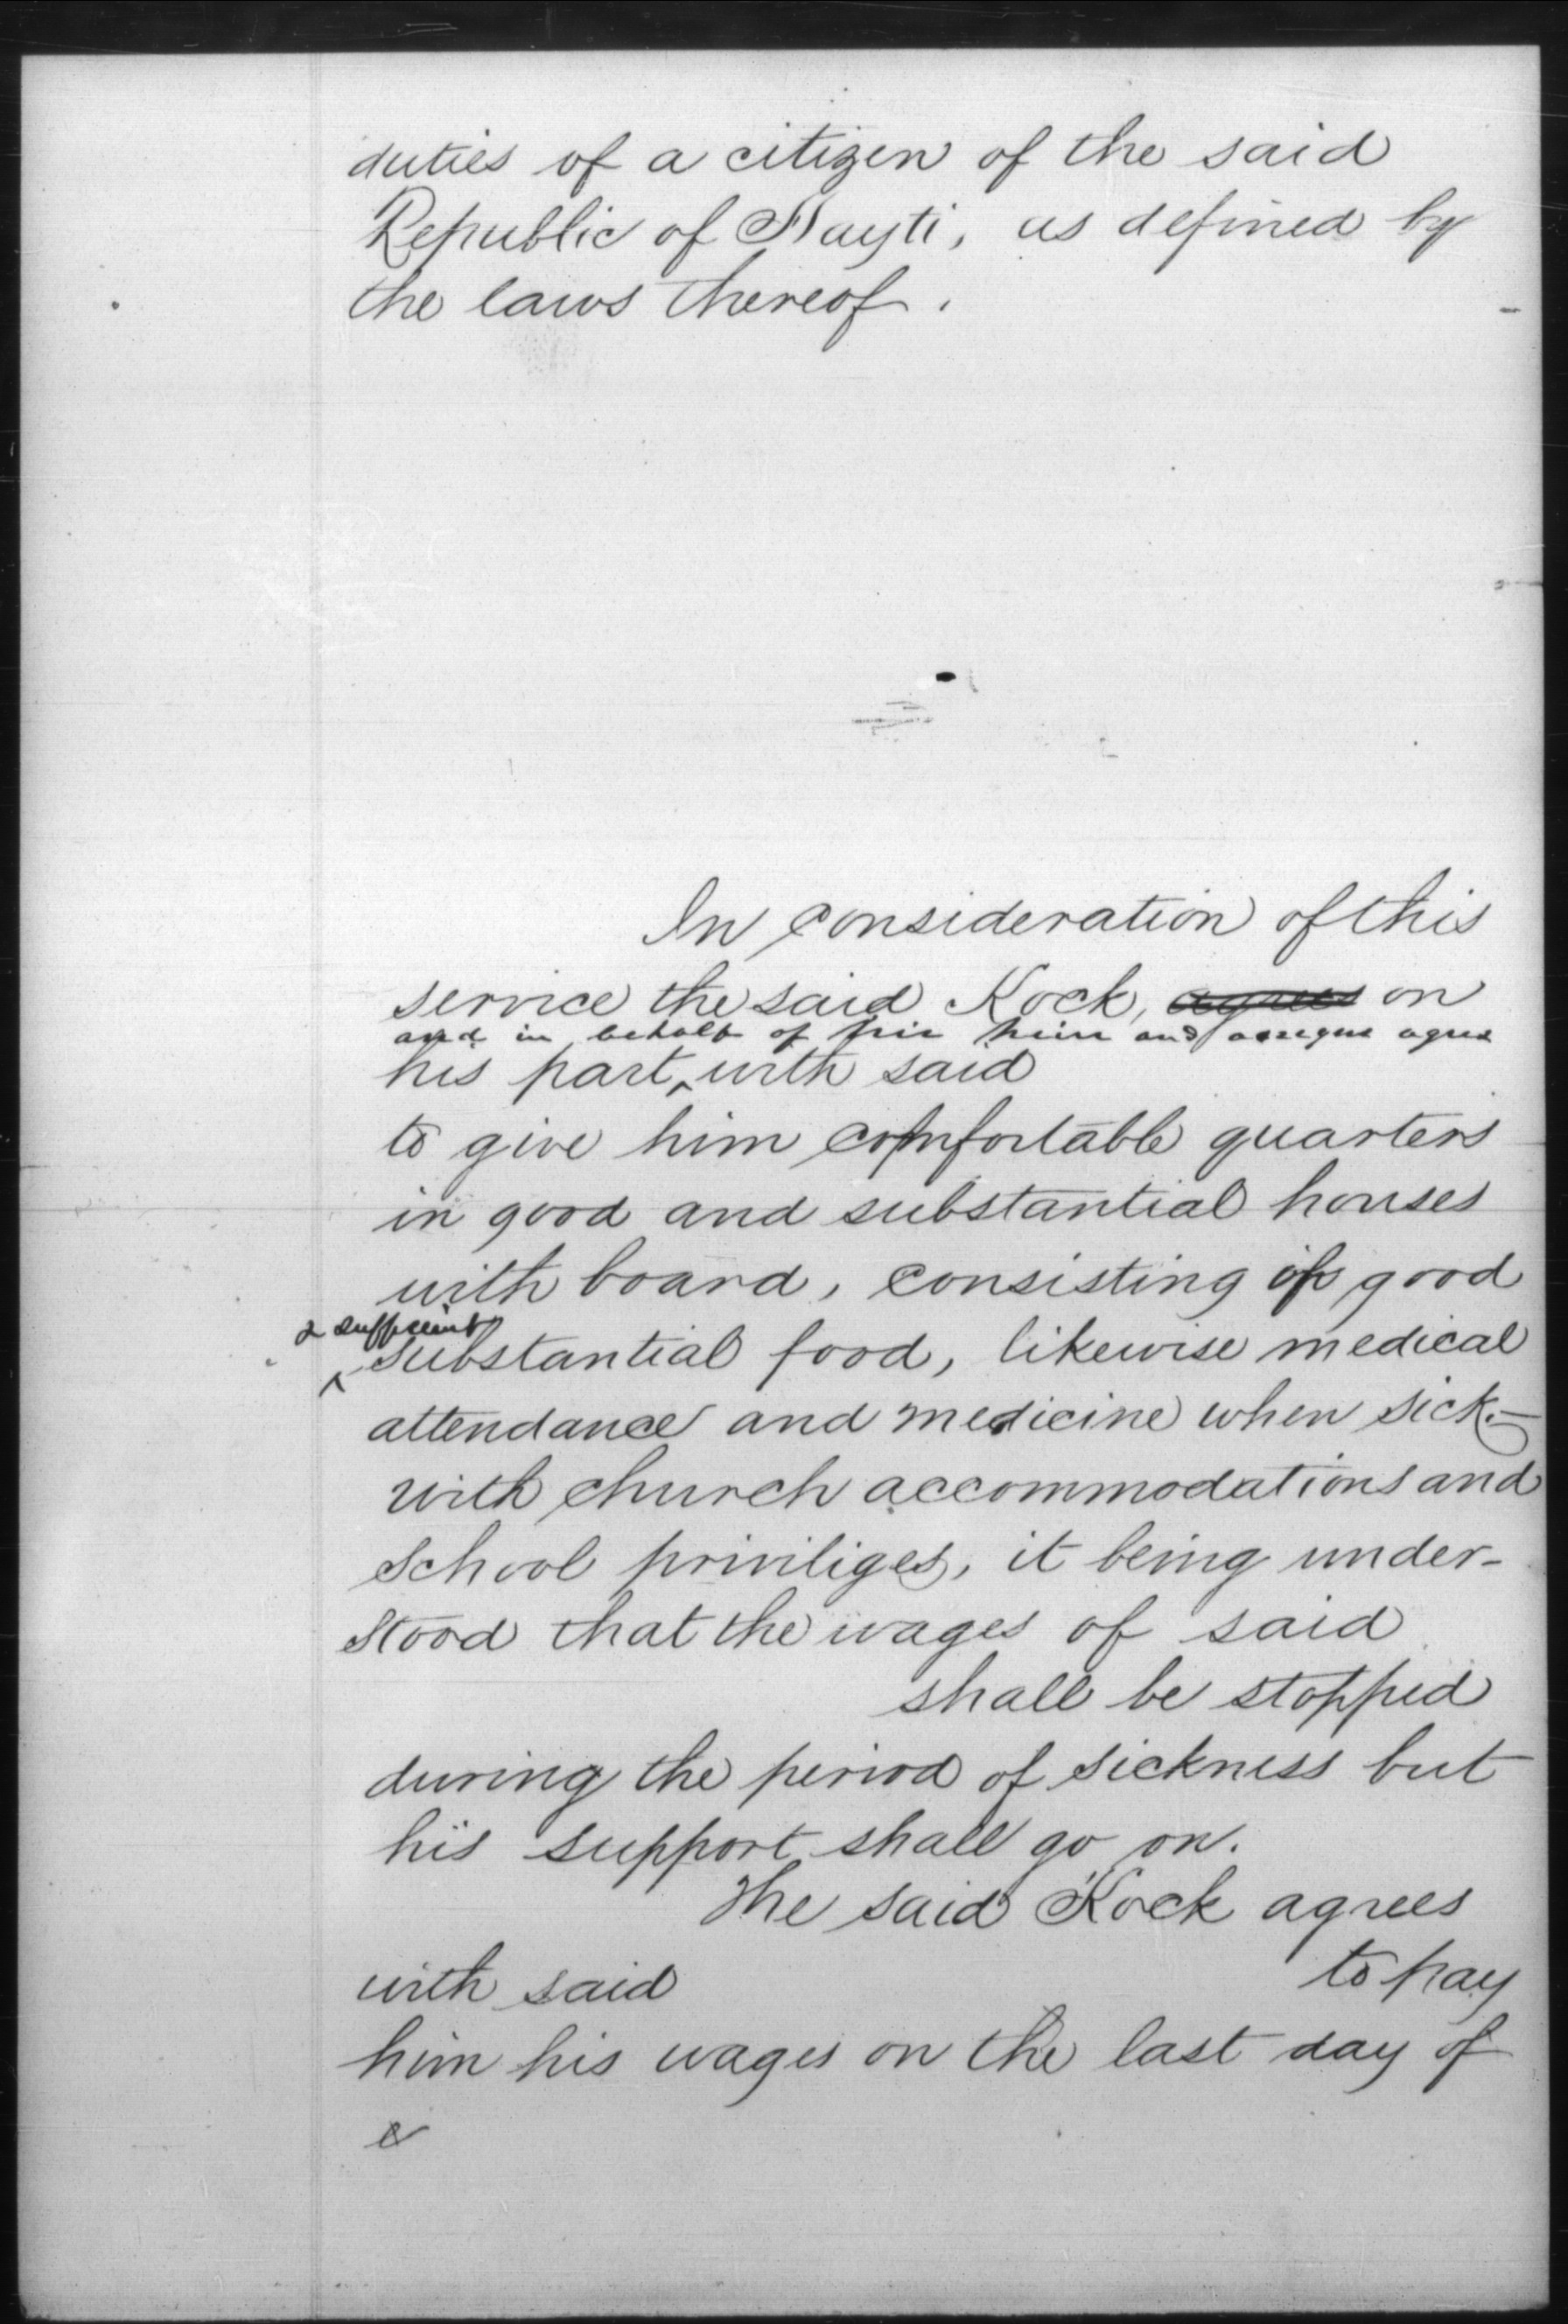 duties of a citizen of the said
Republic of Hayti, as defined by
the laws thereof.
In consideration of this
service the said Kock, agrees on
and in behalf of his heirs and assigns agrees
his part, with said
to give him comfortable quarters
in good and substantial houses
with board, consisting of good
& sufficient
substantial food, likewise medical
attendance and medicine when sick.—
with church accommodations and
School priviliges, it being under-
stood that the wages of said
shall be stopped
during the period of sickness but
his support shall go on.
The said Kock agrees
with said to pay
him his wages on the last day of